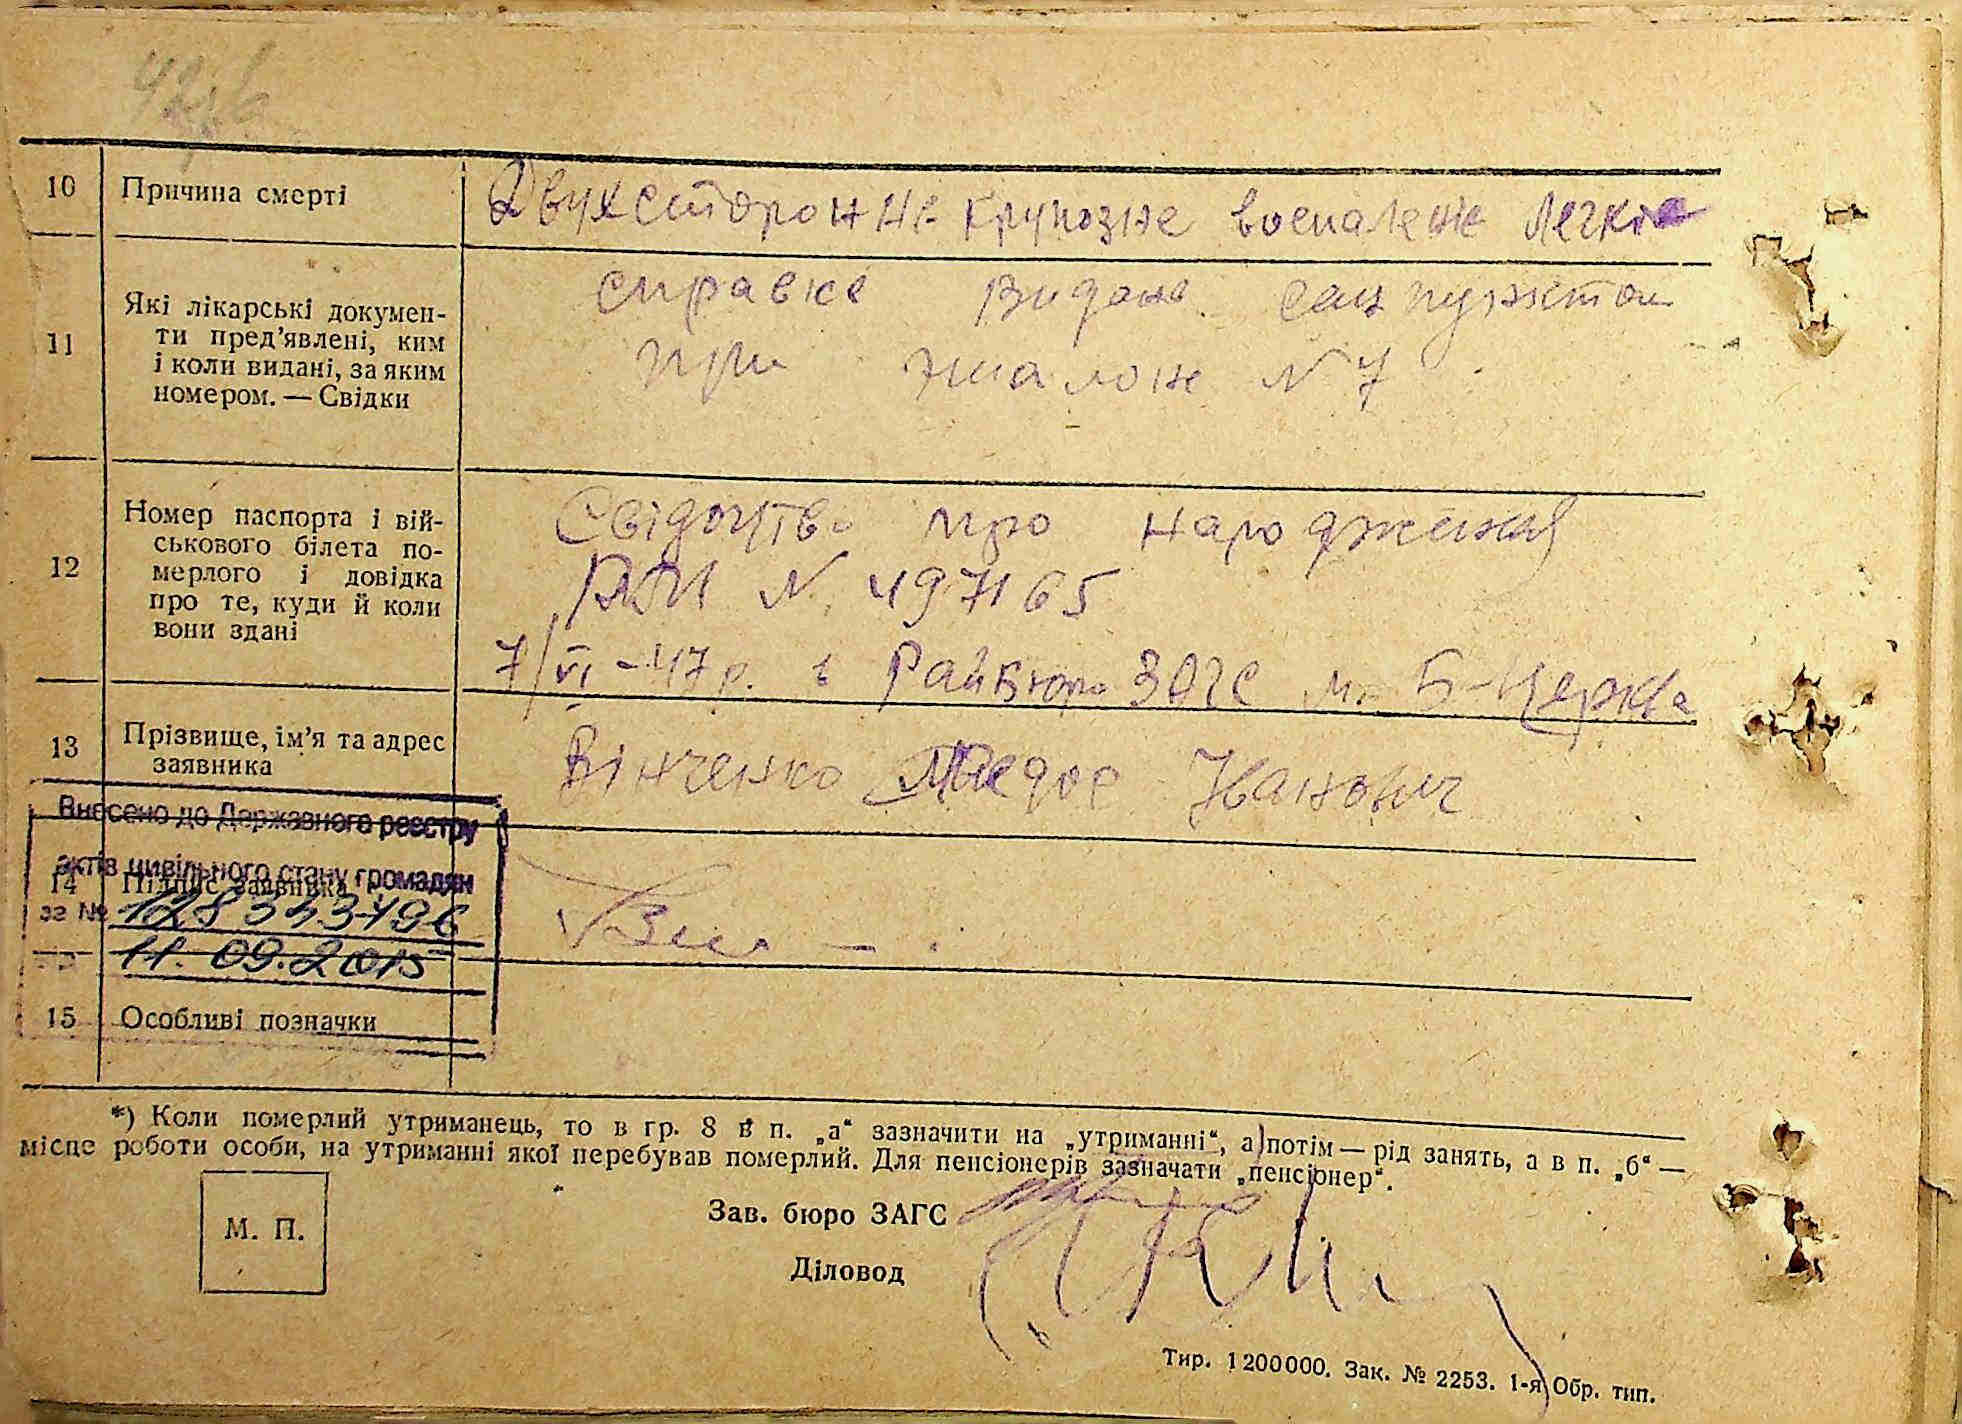 10 Причина смерті Двухсторонне крупозне воспаленіе легкіе
11 Які лікарські докумен-
ти пред'явлені, ким
і коли видані, за яким
номером. — Свідки
справке видана сан пунктом
при № 7
12 Номер паспорта і вій-
ськового білета по-
мерлого і довідка
про те, куди й коли
вони здані
Свідоцтво про народження
№ 497165
7/VI-47р. в Райбюро ЗАГС м. Б-Церква
13 Прізвище, ім'я та адрес
заявника
Вінченко Іванович
Внесено до Державного реєстру
актів цивільного стану громадян
14 Підпис заявника
за №
11.09.2015
15 Особливі позначки
*) Коли померлий утриманець, то в гр. 8 в п. „а“ зазначити на „утриманні“, а потім — рід занять, а в п. „б“ —
місце роботи особи, на утриманні якої перебував померлий. Для пенсіонерів зазначати „пенсіонер“.
М. П.
Зав. бюро ЗАГС
Діловод
Тир. 1200000. Зак. № 2253. 1-я Обр. тип.